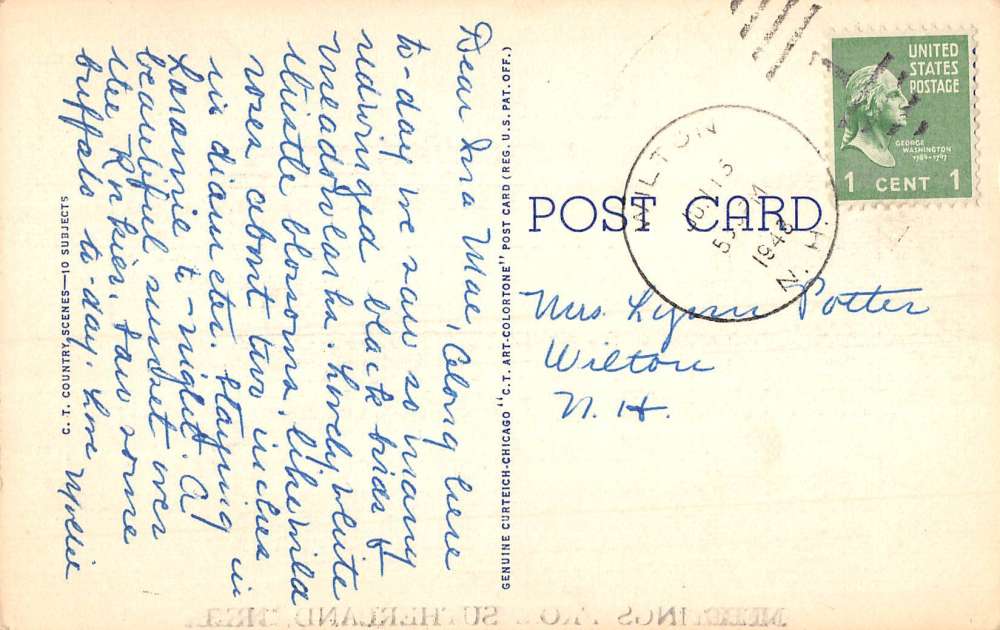 Dear Ina Mae, Along here
to-day we saw so many
redwinged black birds &
meadowlarks. Lovely white
thistle blossoms, like wild
roses about two inches
in diameter. Staying in
Laramie to-night. A
beautiful sunset over
the Rockies. Saw some
buffalo to-day. Love Mollie
C. T. COUNTRY SCENES—10 SUBJECTS
GENUINE CURTEICH-CHICAGO "C. T. ART-COLORTONE" POST CARD (REG. U. S. PAT. OFF.)
POST CARD
UNITED
STATES
POSTAGE
GEORGE
WASHINGTON
1789-1797
1 CENT 1
5
M
1943
N. H.
Mrs. Lynn Potter
Wilton
N. H.
SUTHERLAND,